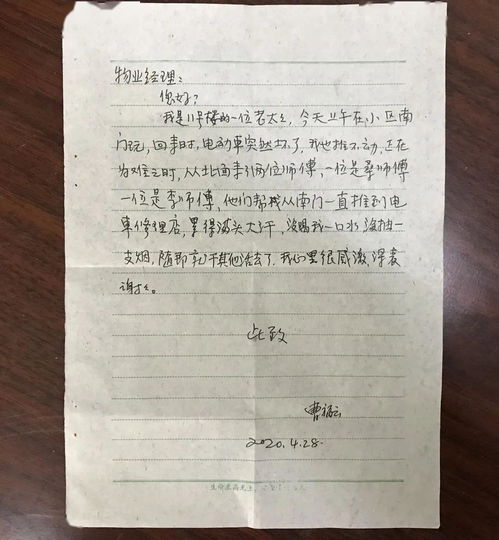 物业经理：
您好？
我是11号楼的一位老太太，今天上午在小区南
门玩，回来时，电动车突然坏了，我也推不动，正在
为难之时，从北面来了两位师傅，一位是蔡师傅
一位是李师傅，他们帮我从南门一直推到电
车修理店，累得满头大汗，没喝我一口水没抽一
支烟，随即就干其他活去了，我心里很感激，深表
谢谢。
此致
曹福云
2020.4.28.